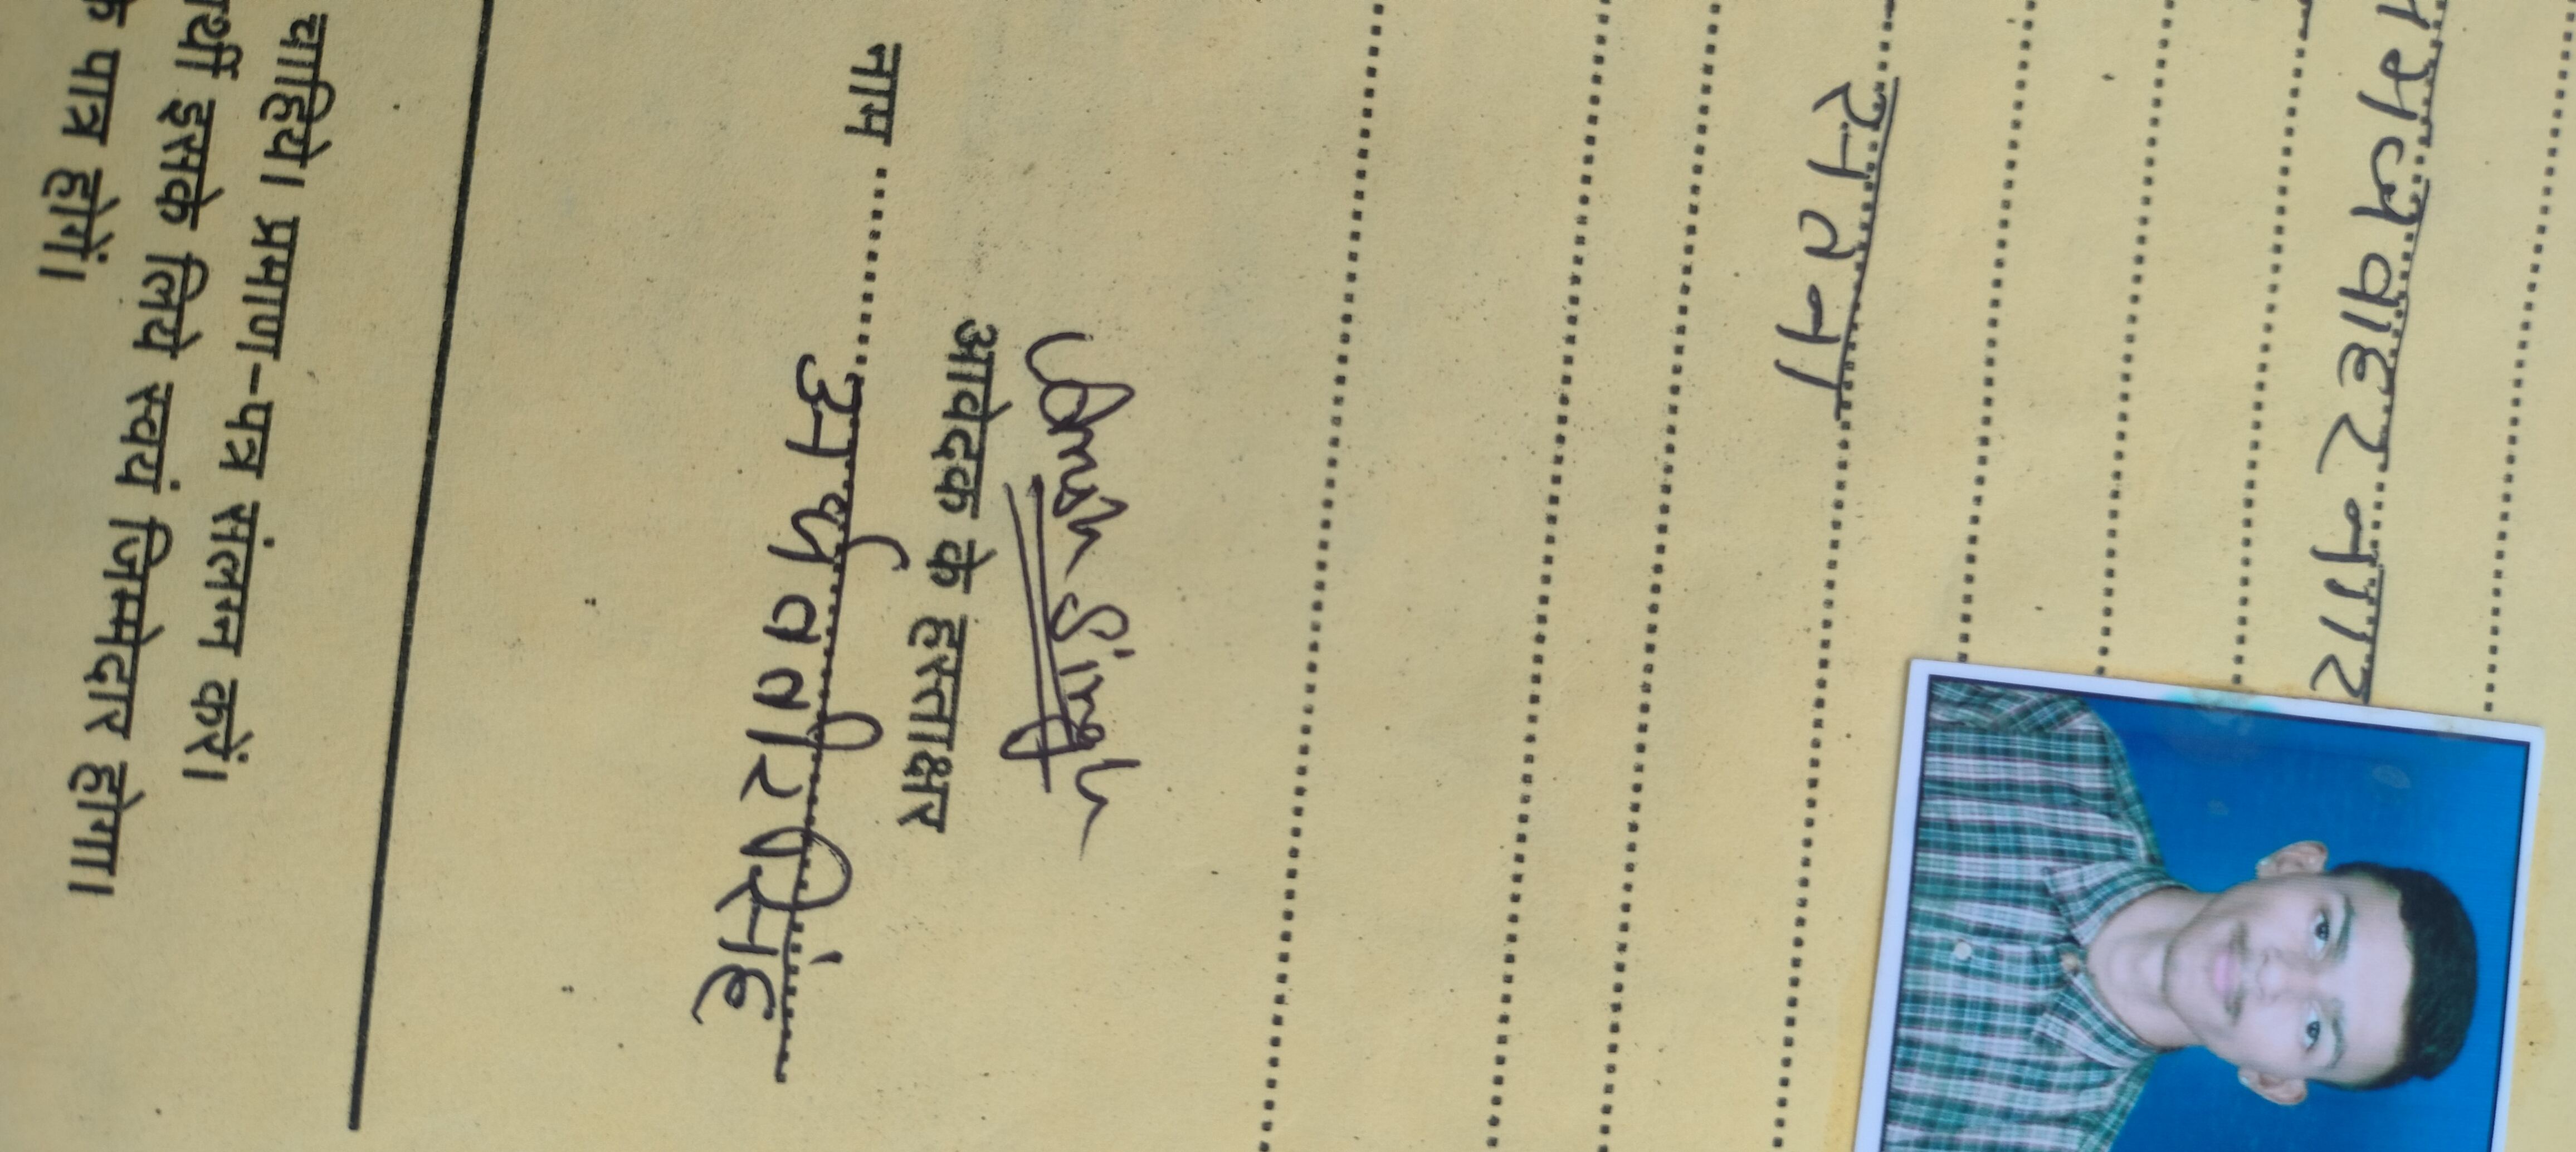 जवाहर नगर
सतना
Singh
आवेदक के हस्ताक्षर
नाम अर्थववीर सिंह
चाहिये। प्रमाण-पत्र संलग्न करें।
इसके लिये स्वयं जिम्मेदार होगा।
पात्र होगें।